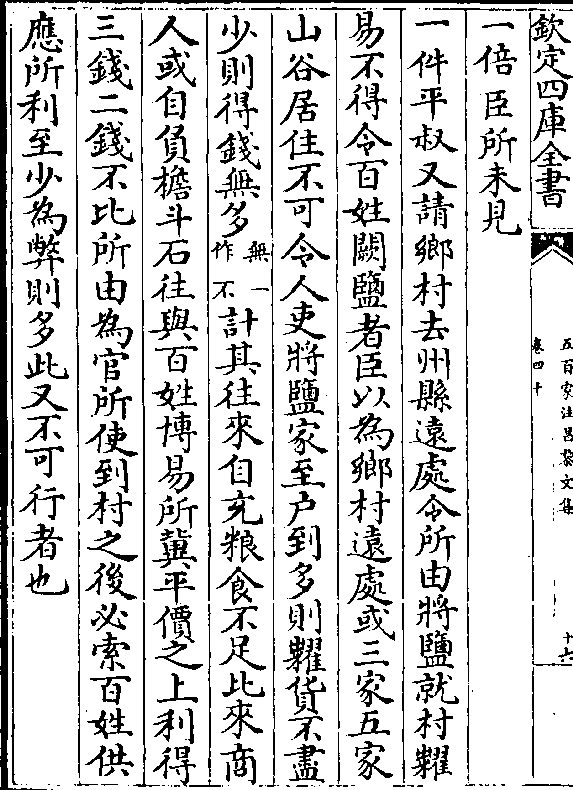 欽定四庫全書
五百家注昌黎文集
卷四十
十六
一倍臣所未見
一件平叔又請鄉村去州縣遠處令所由將鹽就村糶
易不得令百姓闕鹽者臣以為鄉村遠處或三家五家
山谷居住不可令人吏將鹽家至户到多則糶貨不盡
少則得錢無多無一作不計其往來自充粮食不足比來商
人或自負檐斗石往與百姓博易所冀平價之上利得
三錢二錢不比所由為官所使到村之後必索百姓供
應所利至少為弊則多此又不可行者也